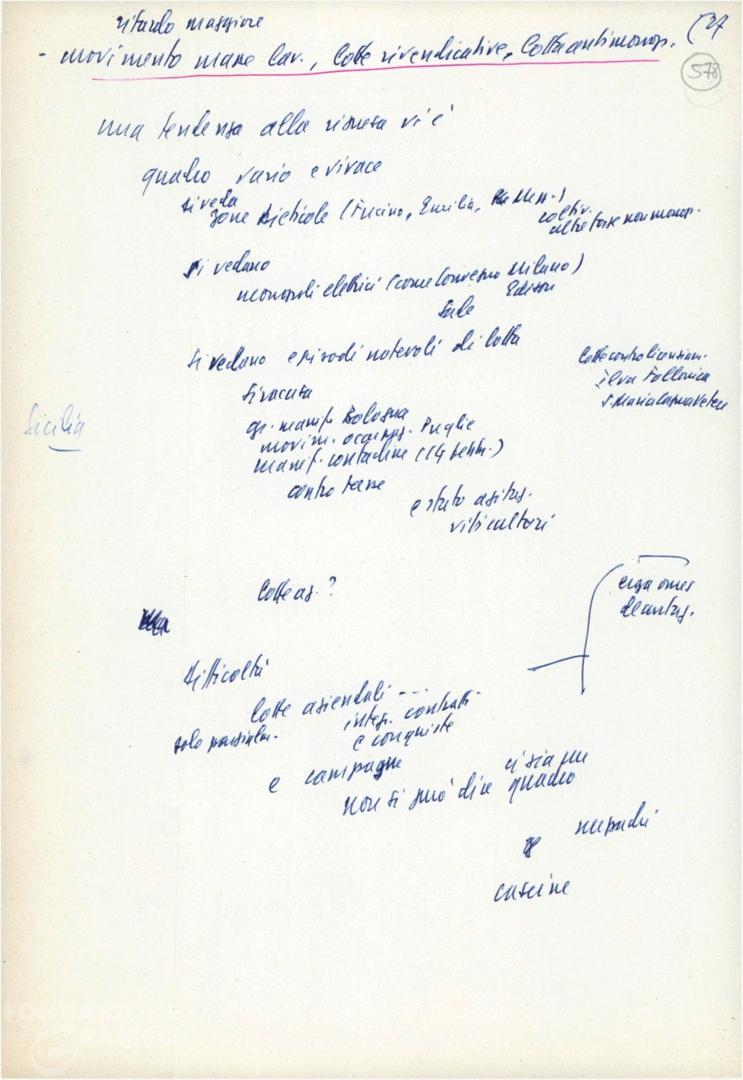 ritardo maggiore
- movimento masse lav., lotte rivendicative, lotta antimonop.
(37
578
una tendenza alla ripresa vi è
quadro vario e vivace
si veda
zone bieticole (Fucino, Emilia,
coltiv.
altre forze non monop.
si vedano
monopoli elettrici (come Convegno Milano)
Edison
Sade
si vedano episodi notevoli di lotta
Siracusa
gr. manif. Bologna
movim. occupaz. Puglie
manif. contadine (14 sett.)
contro tasse
e stato agitaz.
viticultori
lotte contro licenziam.
Ilva Follonica
S. Maria Capua Vetere
Sicilia
lotte az.?
erga omnes
Difficoltà
lotte aziendali ---
solo parzialm.
integr. contratti
e conquiste
e campagne
non si può dire
ci sia un
quadro
mezzadri
cascine